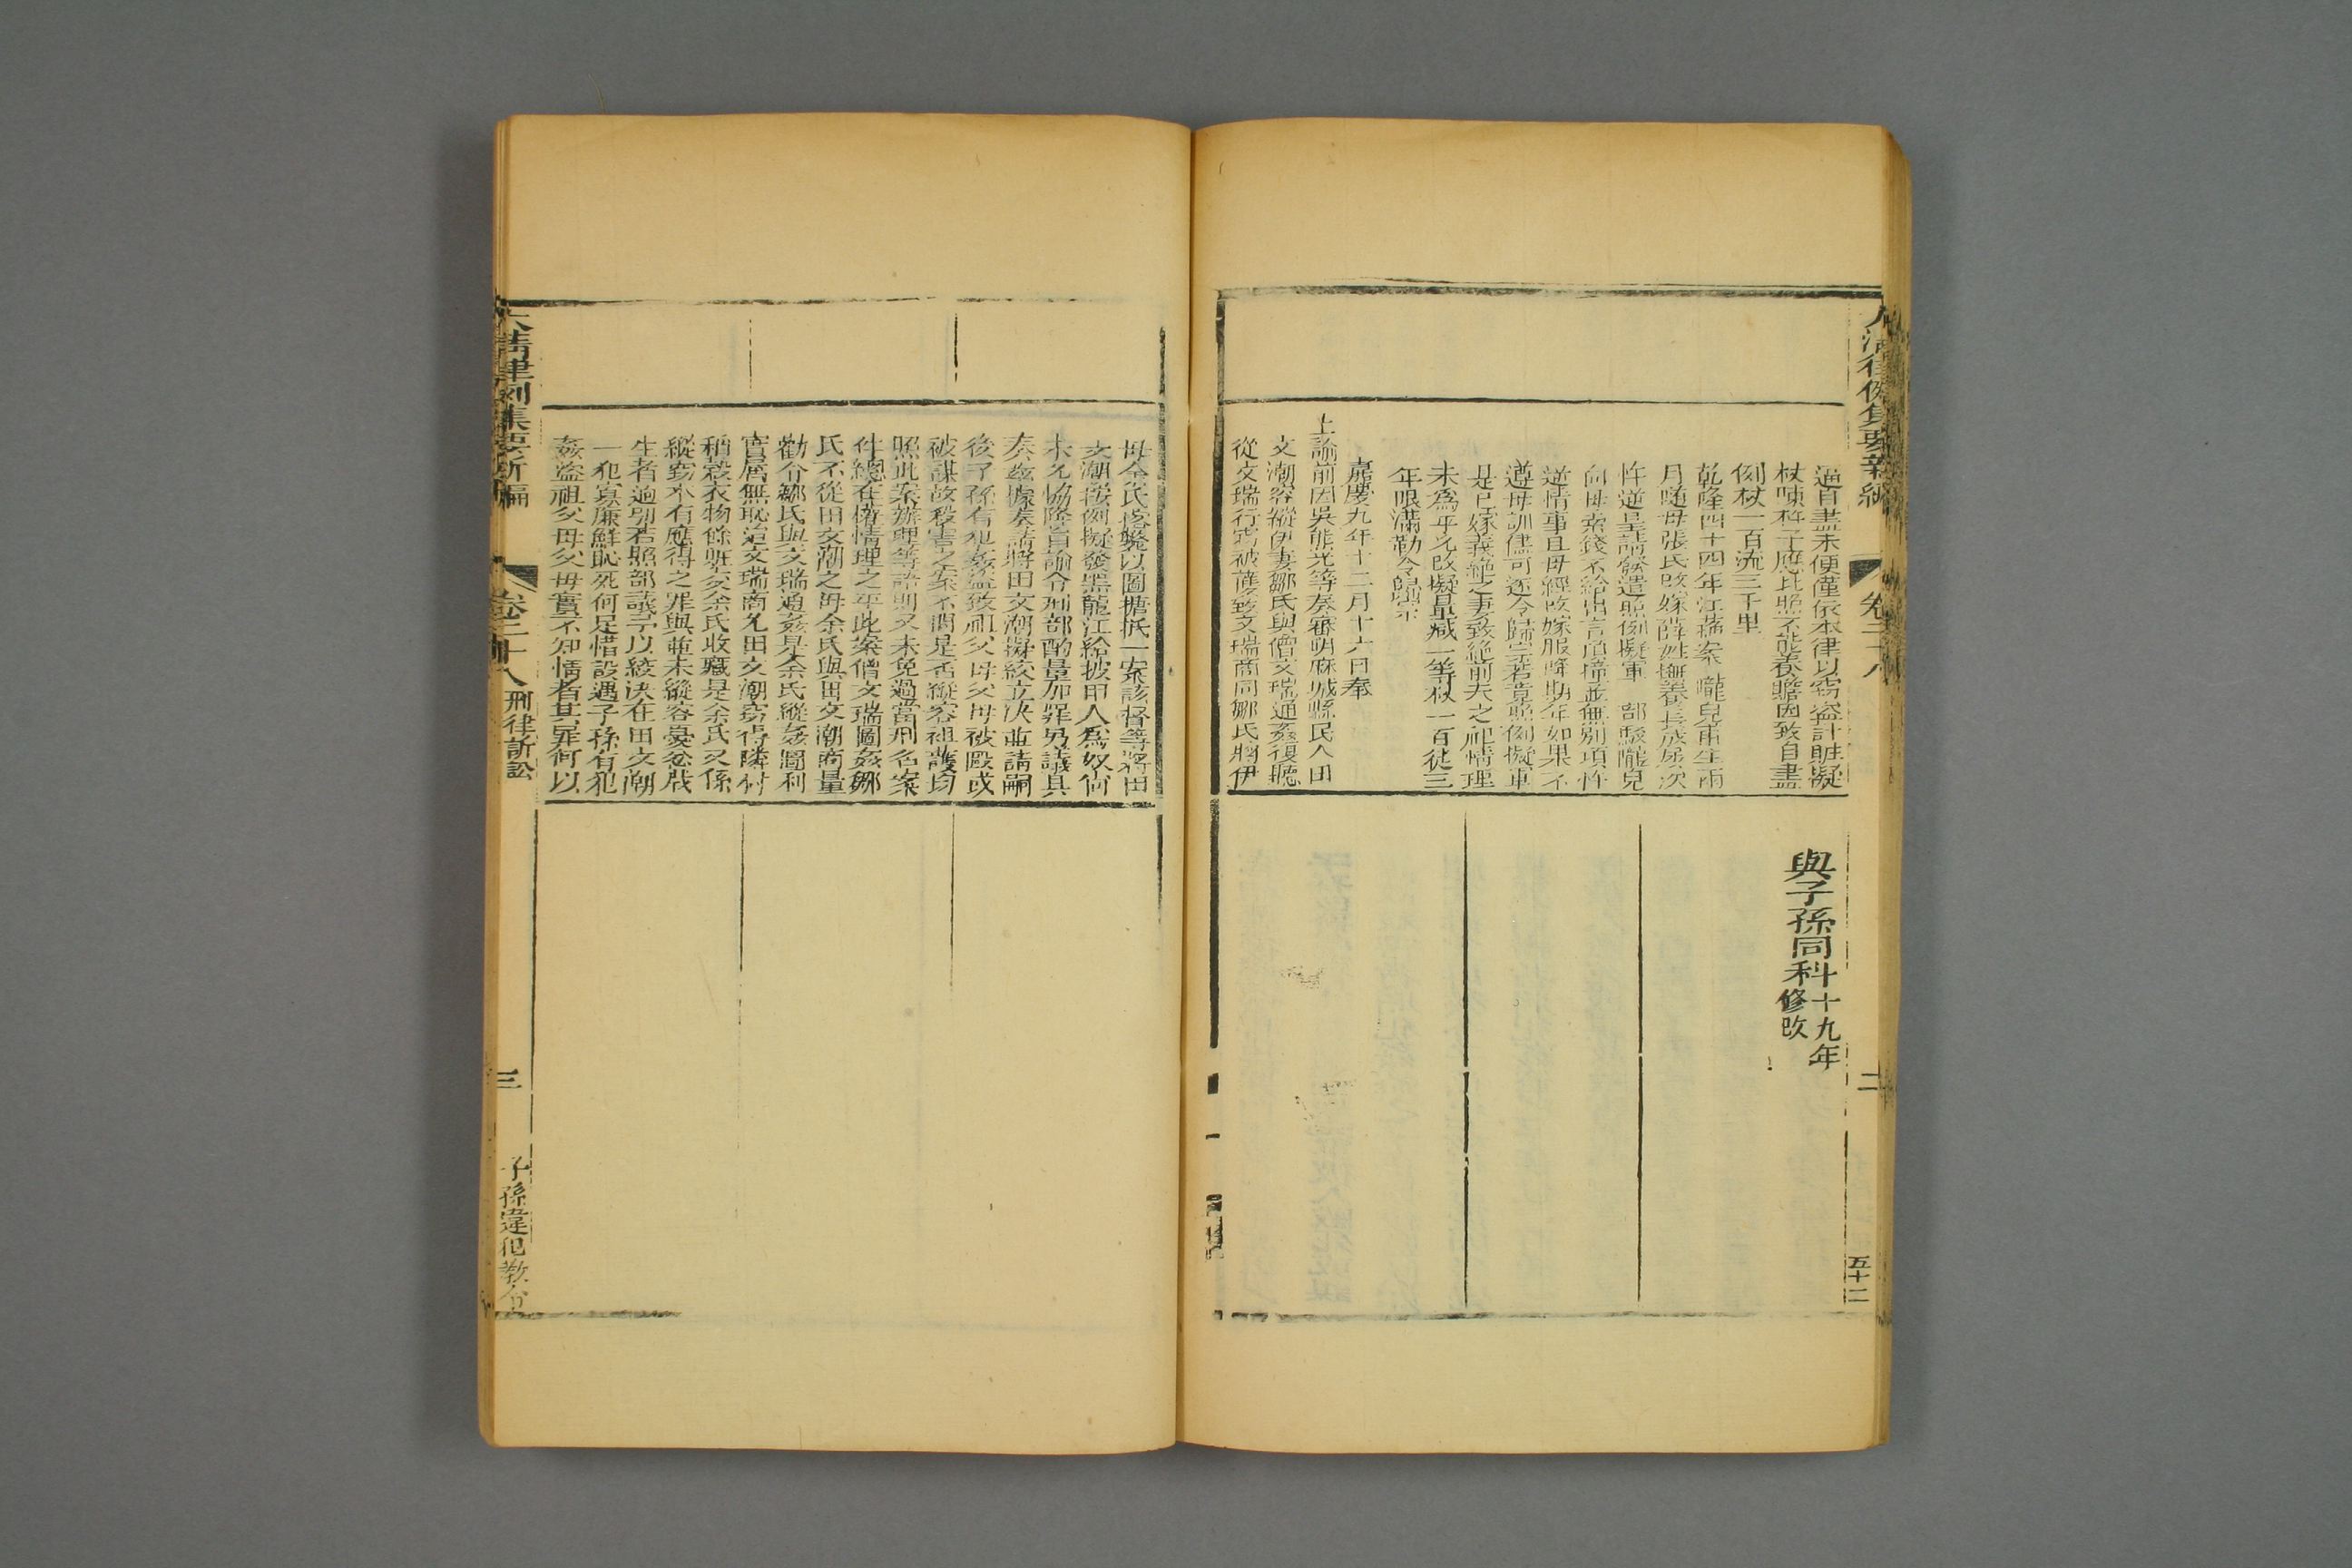 大清律例集要新編
卷二十八
二
五十二
逼自盡未便僅依本律以竊盜計贓擬
杖陳科子應比照不能養贍因致自盡
例杖一百流三千里
乾隆四十四年江蘇案隴兒甫生兩
月隨母張氏改嫁薛姓撫養長成屢次
忤逆呈請發遣照例擬軍 部駁隴兒
向母索錢不給出言頂撞並無別項忤
逆情事且母經改嫁服降期年如果不
遵母訓儘可逐令歸宗若竟照例擬軍
是已嫁義絕之妻致絕前夫之祀情理
未為平允改擬量減一等杖一百徒三
年限滿勒令歸宗
嘉慶九年十二月十六日奉
上諭前因吳熊光等奏審明麻城縣民人田
文潮容縱伊妻鄒氏與僧文瑞通姦復聽
從文瑞行竊被獲致文瑞商同鄒氏將伊
與子孫同科十九年
修改
母余氏搭斃以圖搪抵一案該督等將田
文潮按例擬發黑龍江給披甲人為奴何
未允協降旨諭令刑部酌量加罪另議具
奏茲據奏請將田文潮擬絞立決並請嗣
後子孫有犯姦盜致祖父母父母被毆或
被謀故殺害之案不問是否縱容袒護均
照此案辦理等語則又未免過當刑名案
件總在權情理之平此案僧文瑞圖姦鄒
氏不從田文潮之母余氏與田文潮商量
勸令鄒氏與文瑞通姦是余氏縱姦圖利
實屬無恥迨文瑞商允田文潮竊得隣村
稻穀衣物餘贓交余氏收藏是余氏又係
縱竊本有應得之罪與並未縱容憂忿戕
生者逈別若照部議予以絞決在田文潮
一犯寡廉鮮恥死何足惜設遇子孫有犯
姦盜祖父母父母實不知情者其罪何以
大清律例集要新編
卷二十八 刑律訴訟
三
子孫違犯教令